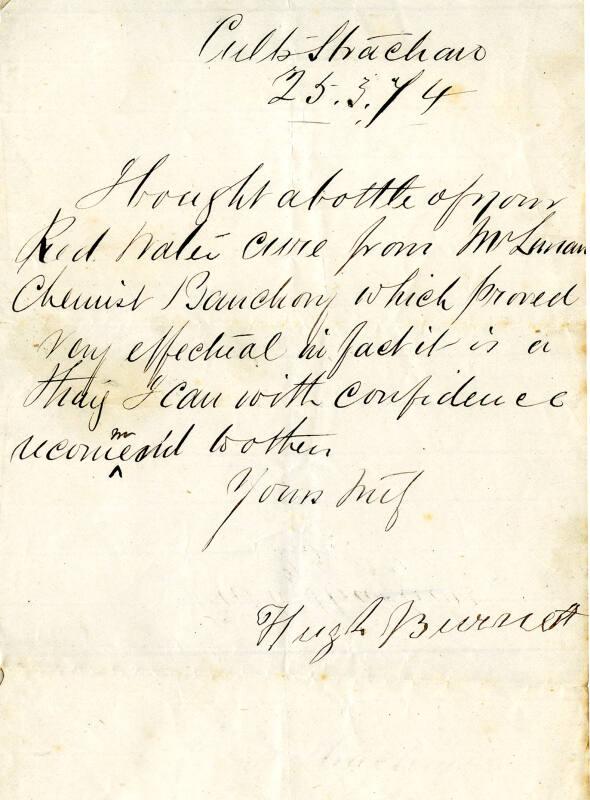 Cults Strachan
25.3.74
I bought a bottle of your
Red Water cure from Mr Lunan
Chemist Banchory which proved
very effectual in fact it is a
thing I can with confidence
recommend to others
Yours
Hugh Burnett